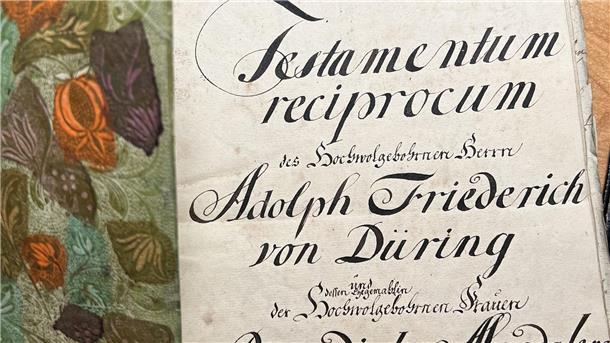 Testamentum
reciprocum
des Hochwolgebohrnen Herrn
Adolph Friederich
von Düring
und
dessen Ehegemahlin
der Hochwolgebohrnen Frauen